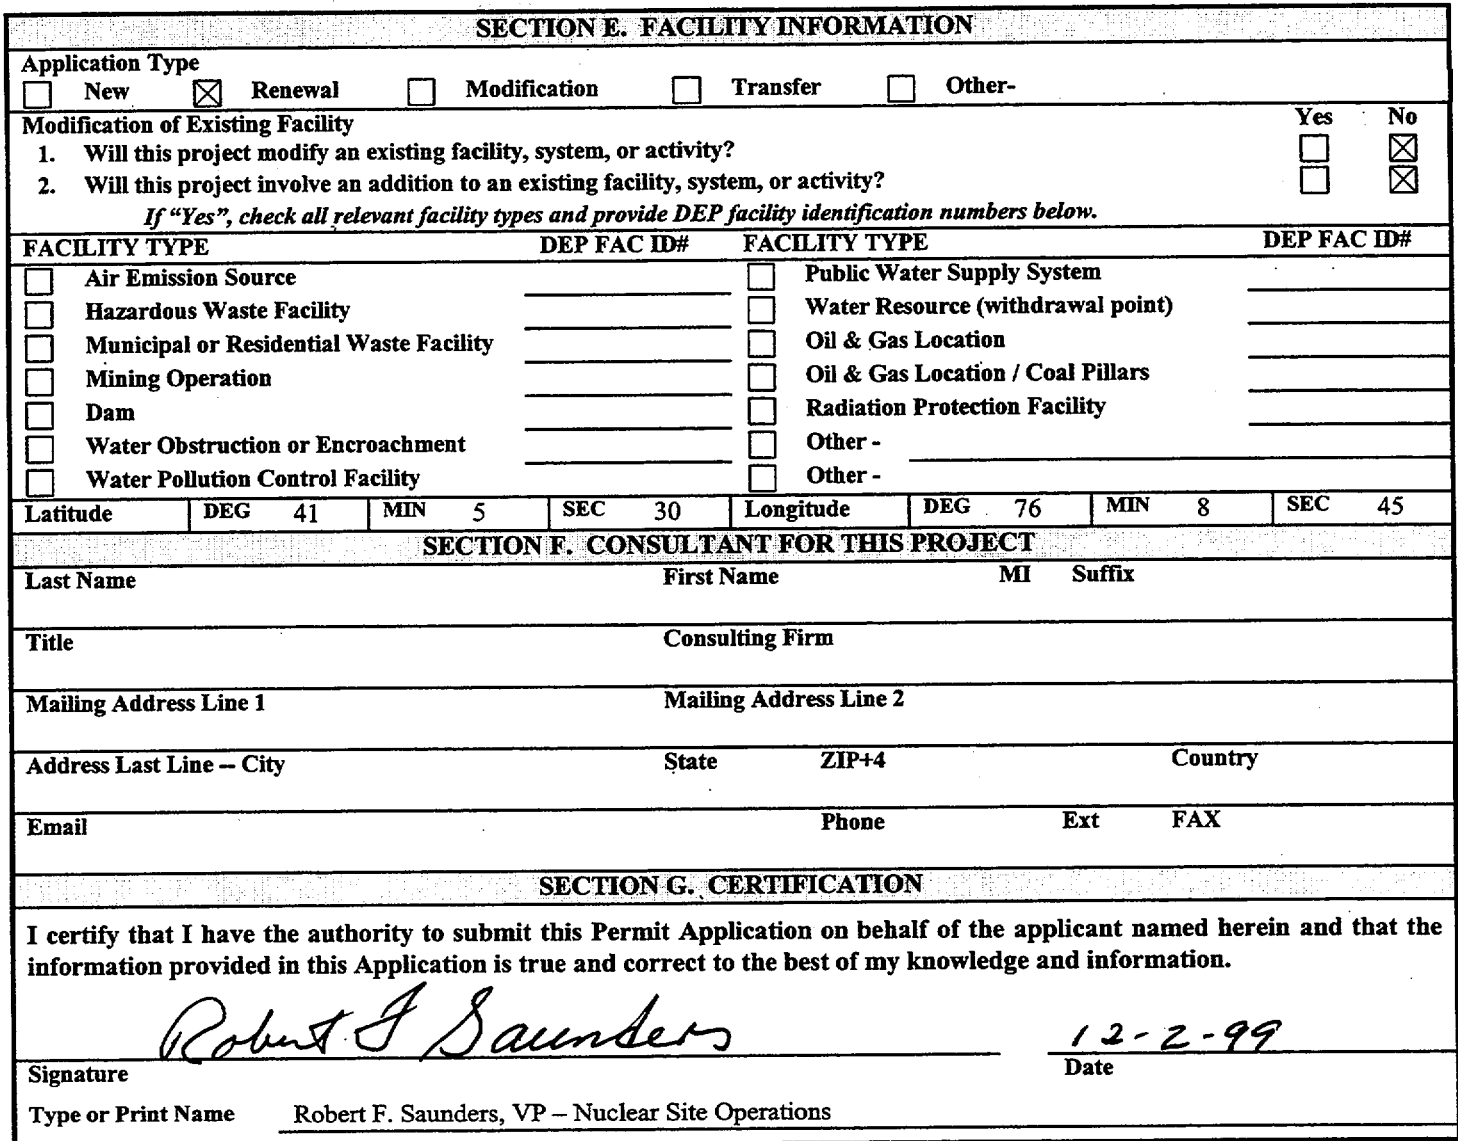 SECTION E. FACILITY INFORMATION
Application Type
New Renewal Modification Transfer Other-
Modification of Existing Facility Yes No
1. Will this project modify an existing facility, system, or activity?
2. Will this project involve an addition to an existing facility, system, or activity?
If "Yes", check all relevant facility types and provide DEP facility identification numbers below.
FACILITY TYPE DEP FAC ID# FACILITY TYPE DEP FAC ID#
Air Emission Source Public Water Supply System
Hazardous Waste Facility Water Resource (withdrawal point)
Municipal or Residential Waste Facility Oil & Gas Location
Mining Operation Oil & Gas Location / Coal Pillars
Dam Radiation Protection Facility
Water Obstruction or Encroachment Other -
Water Pollution Control Facility Other -
Latitude DEG 41 MIN 5 SEC 30 Longitude DEG 76 MIN 8 SEC 45
SECTION F. CONSULTANT FOR THIS PROJECT
Last Name First Name MI Suffix
Title Consulting Firm
Mailing Address Line 1 Mailing Address Line 2
Address Last Line – City State ZIP+4 Country
Email Phone Ext FAX
SECTION G. CERTIFICATION
I certify that I have the authority to submit this Permit Application on behalf of the applicant named herein and that the
information provided in this Application is true and correct to the best of my knowledge and information.
Robert F Saunders 12-2-99
Signature Date
Type or Print Name Robert F. Saunders, VP – Nuclear Site Operations